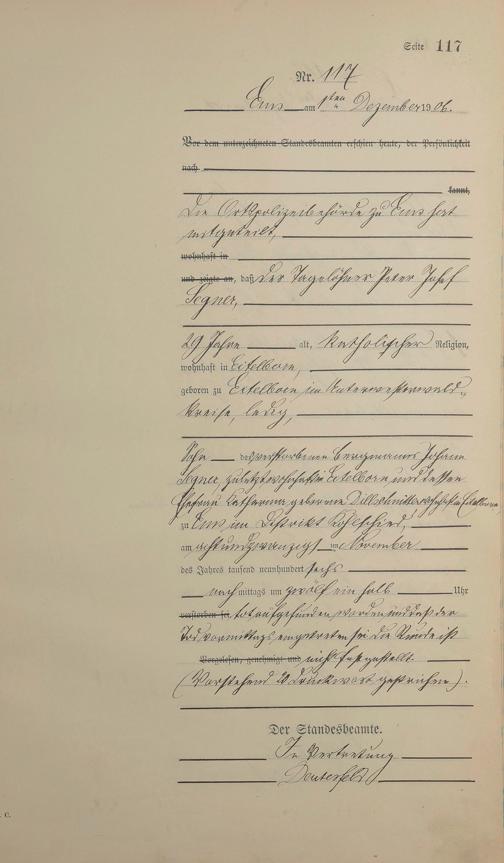 Seite 117
Nr. 117
Ems am 1ten Dezember 1906.
Vor dem unterzeichneten Standesbeamten erschien heute, der Persönlichkeit
nach
kannt,
Die Ortspolizeibehörde zu Ems hat
mitgeteilt,
wohnhaft in
und zeigte an, daß der Tagelöhner Peter Josef
Segner,
29 Jahre alt, katholischer Religion,
wohnhaft in Eitelborn,
geboren zu Eitelborn im Unterwesterwald-
kreise, ledig,
Sohn des verstorbenen Bergmanns Johann
Segner, zuletzt wohnhaft in Eitelborn und dessen
Ehefrau Katharina geborene wohnhaft in Eitelborn
zu Ems im Distrikt Kohlschied,
am achtundzwanzigsten November
des Jahres tausend neunhundert sechs
nachmittags um zwölf ein halb Uhr
verstorben sei, tot aufgefunden worden und daß der
Tod vormittags eingetreten sei die Stunde ist
Vorgelesen, genehmigt und nicht festgestellt.
(Vorstehend 20 Druckwort gestrichen).
Der Standesbeamte.
In Vertretung
C.